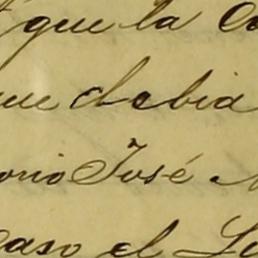 que la
que debia
orio José
caso el